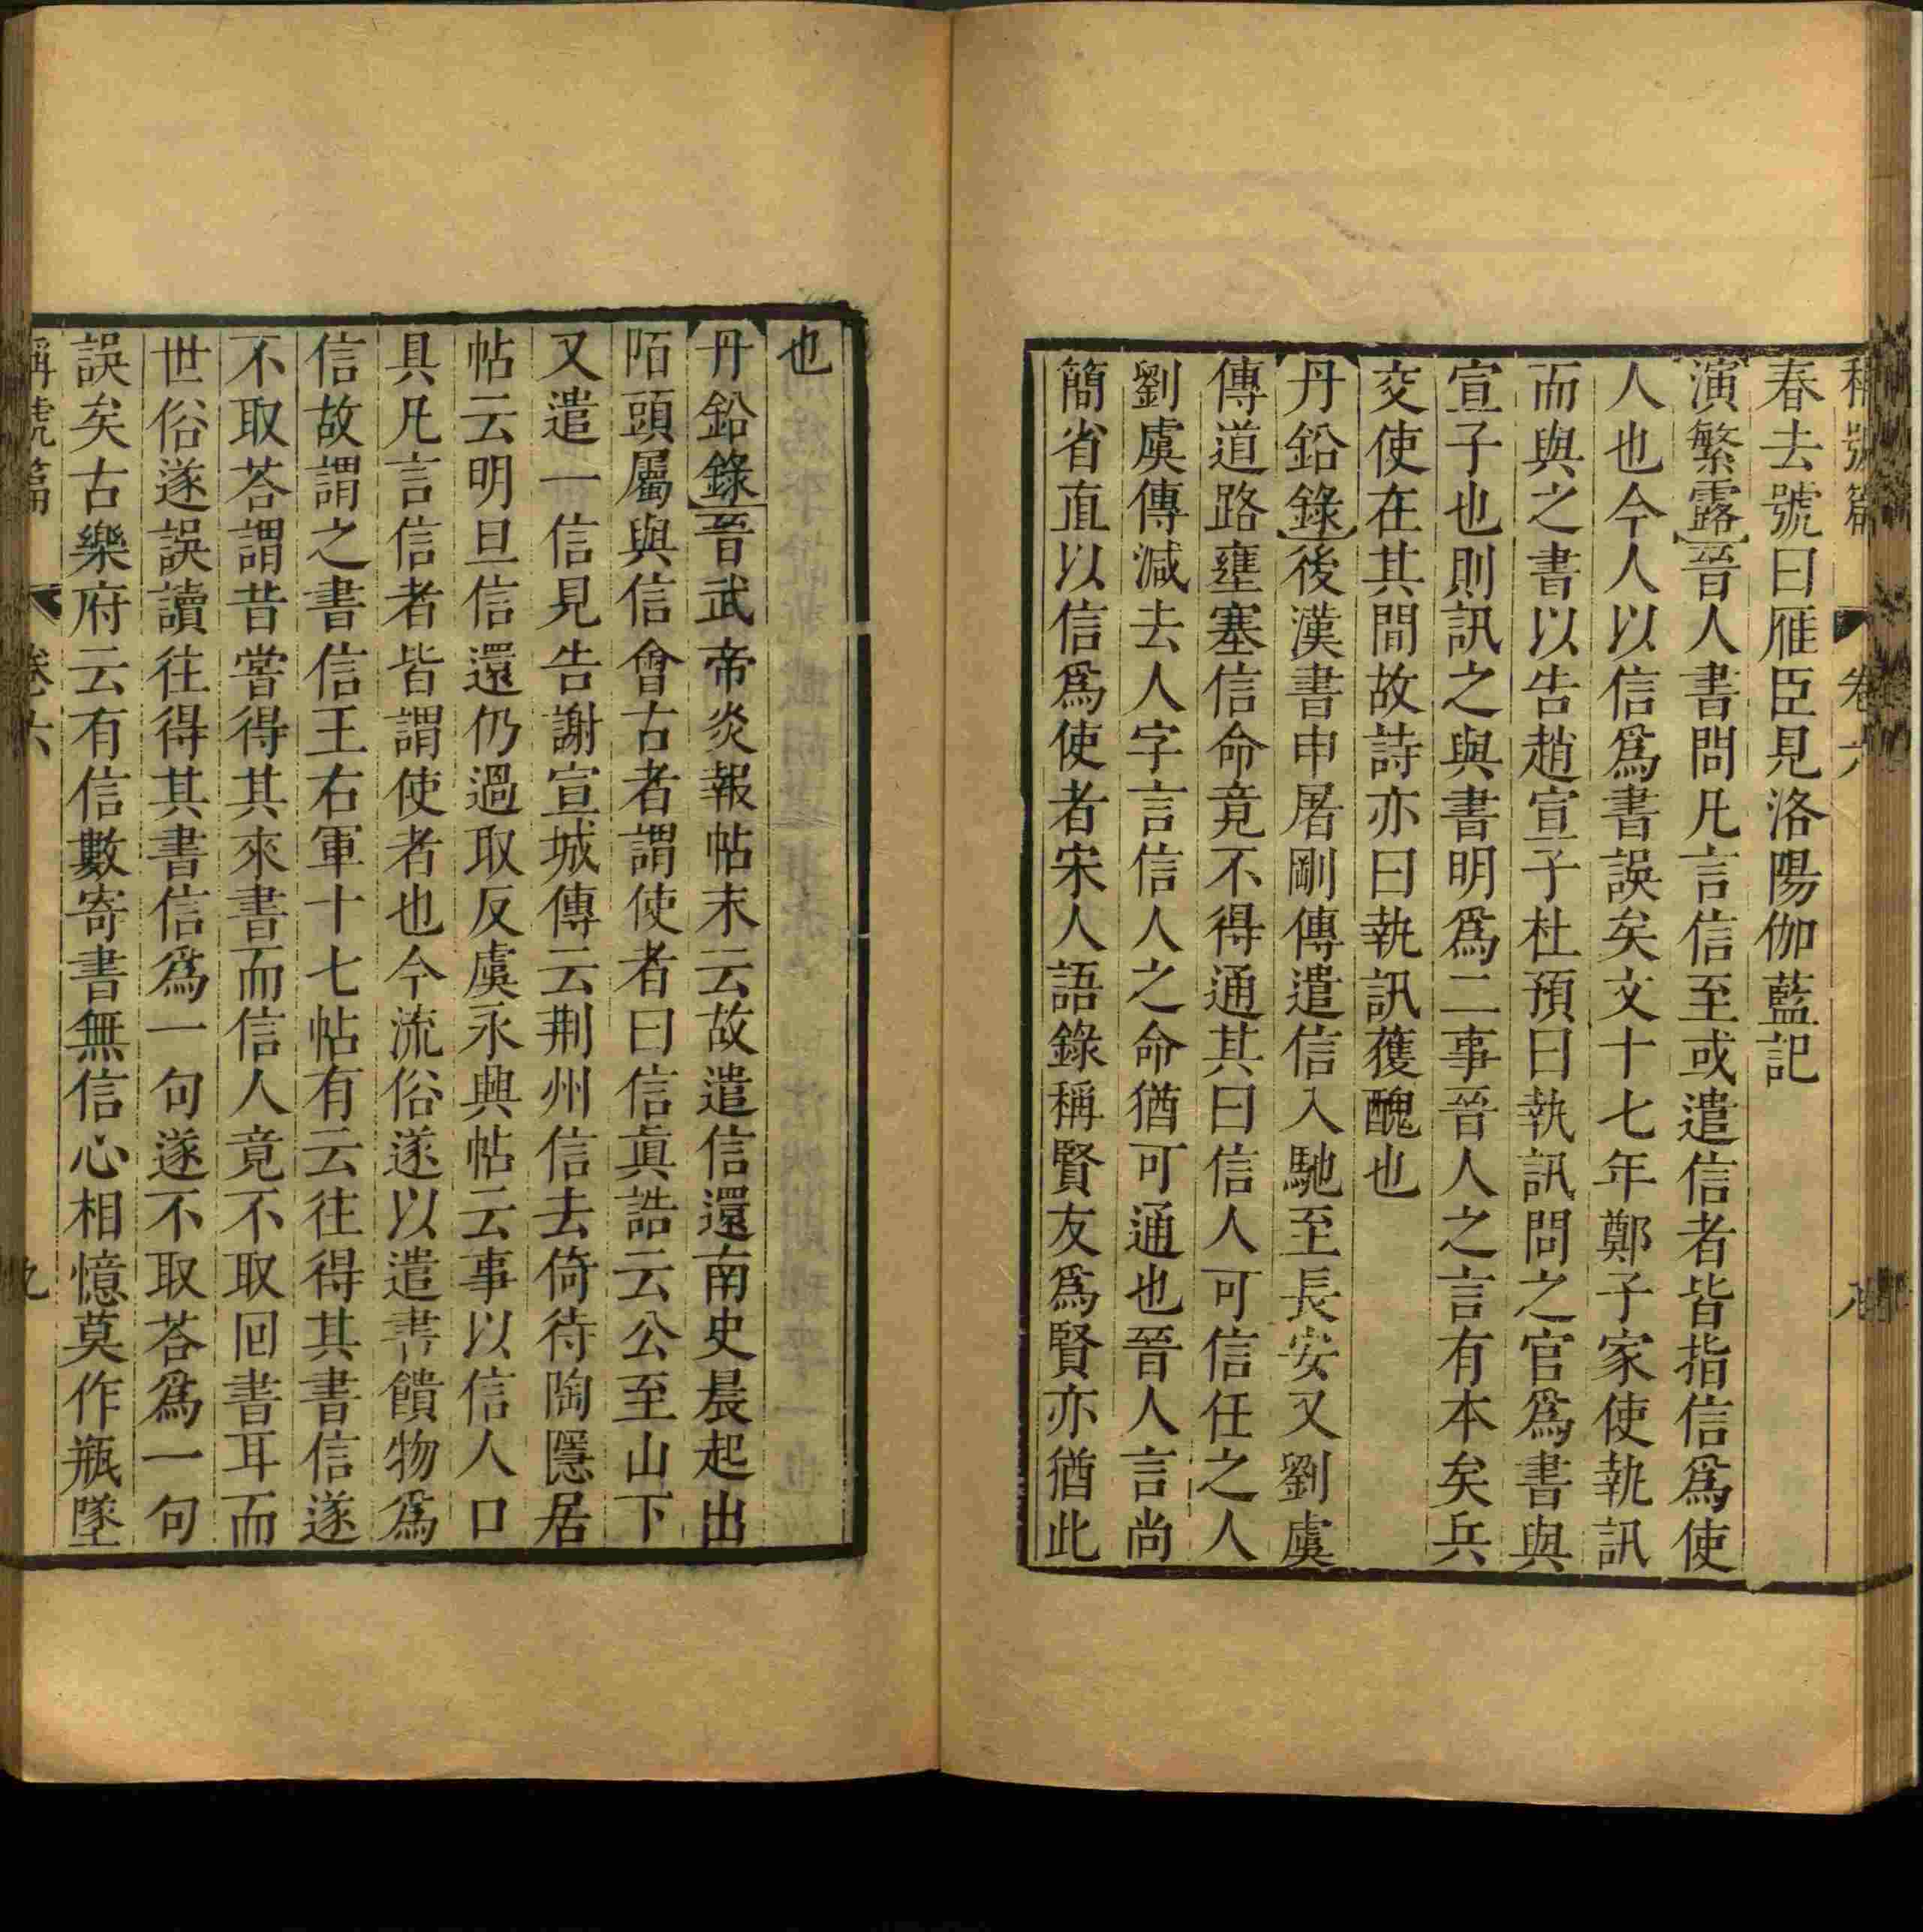 稱號篇 卷六 八
春去號曰雁臣見洛陽伽藍記
演繁露晉人書問凡言信至或遣信者皆指信爲使
人也今人以信爲書誤矣文十七年鄭子家使執訊
而與之書以告趙宣子杜預曰執訊問之官爲書與
宣子也則訊之與書明爲二事晉人之言有本矣兵
交使在其間故詩亦曰執訊獲醜也
丹鉛錄後漢書申屠剛傳遣信入馳至長安又劉虞
傳道路壅塞信命竟不得通其曰信人可信任之人
劉虞傳減去人字言信人之命猶可通也晉人言尚
簡省直以信爲使者宋人語錄稱賢友爲賢亦猶此
也
丹鉛錄晉武帝炎報帖末云故遣信還南史晨起出
陌頭屬與信會古者謂使者曰信眞誥云公至山下
又遣一信見告謝宣城傳云荆州信去倚待陶隱居
帖云明旦信還仍過取反虞永興帖云事以信人口
具凡言信者皆謂使者也今流俗遂以遣書饋物爲
信故謂之書信王右軍十七帖有云往得其書信遂
不取荅謂昔嘗得其來書而信人竟不取回書耳而
世俗遂誤讀往得其書信爲一句遂不取荅爲一句
誤矣古樂府云有信數寄書無信心相憶莫作瓶墜
稱號篇 卷六 九